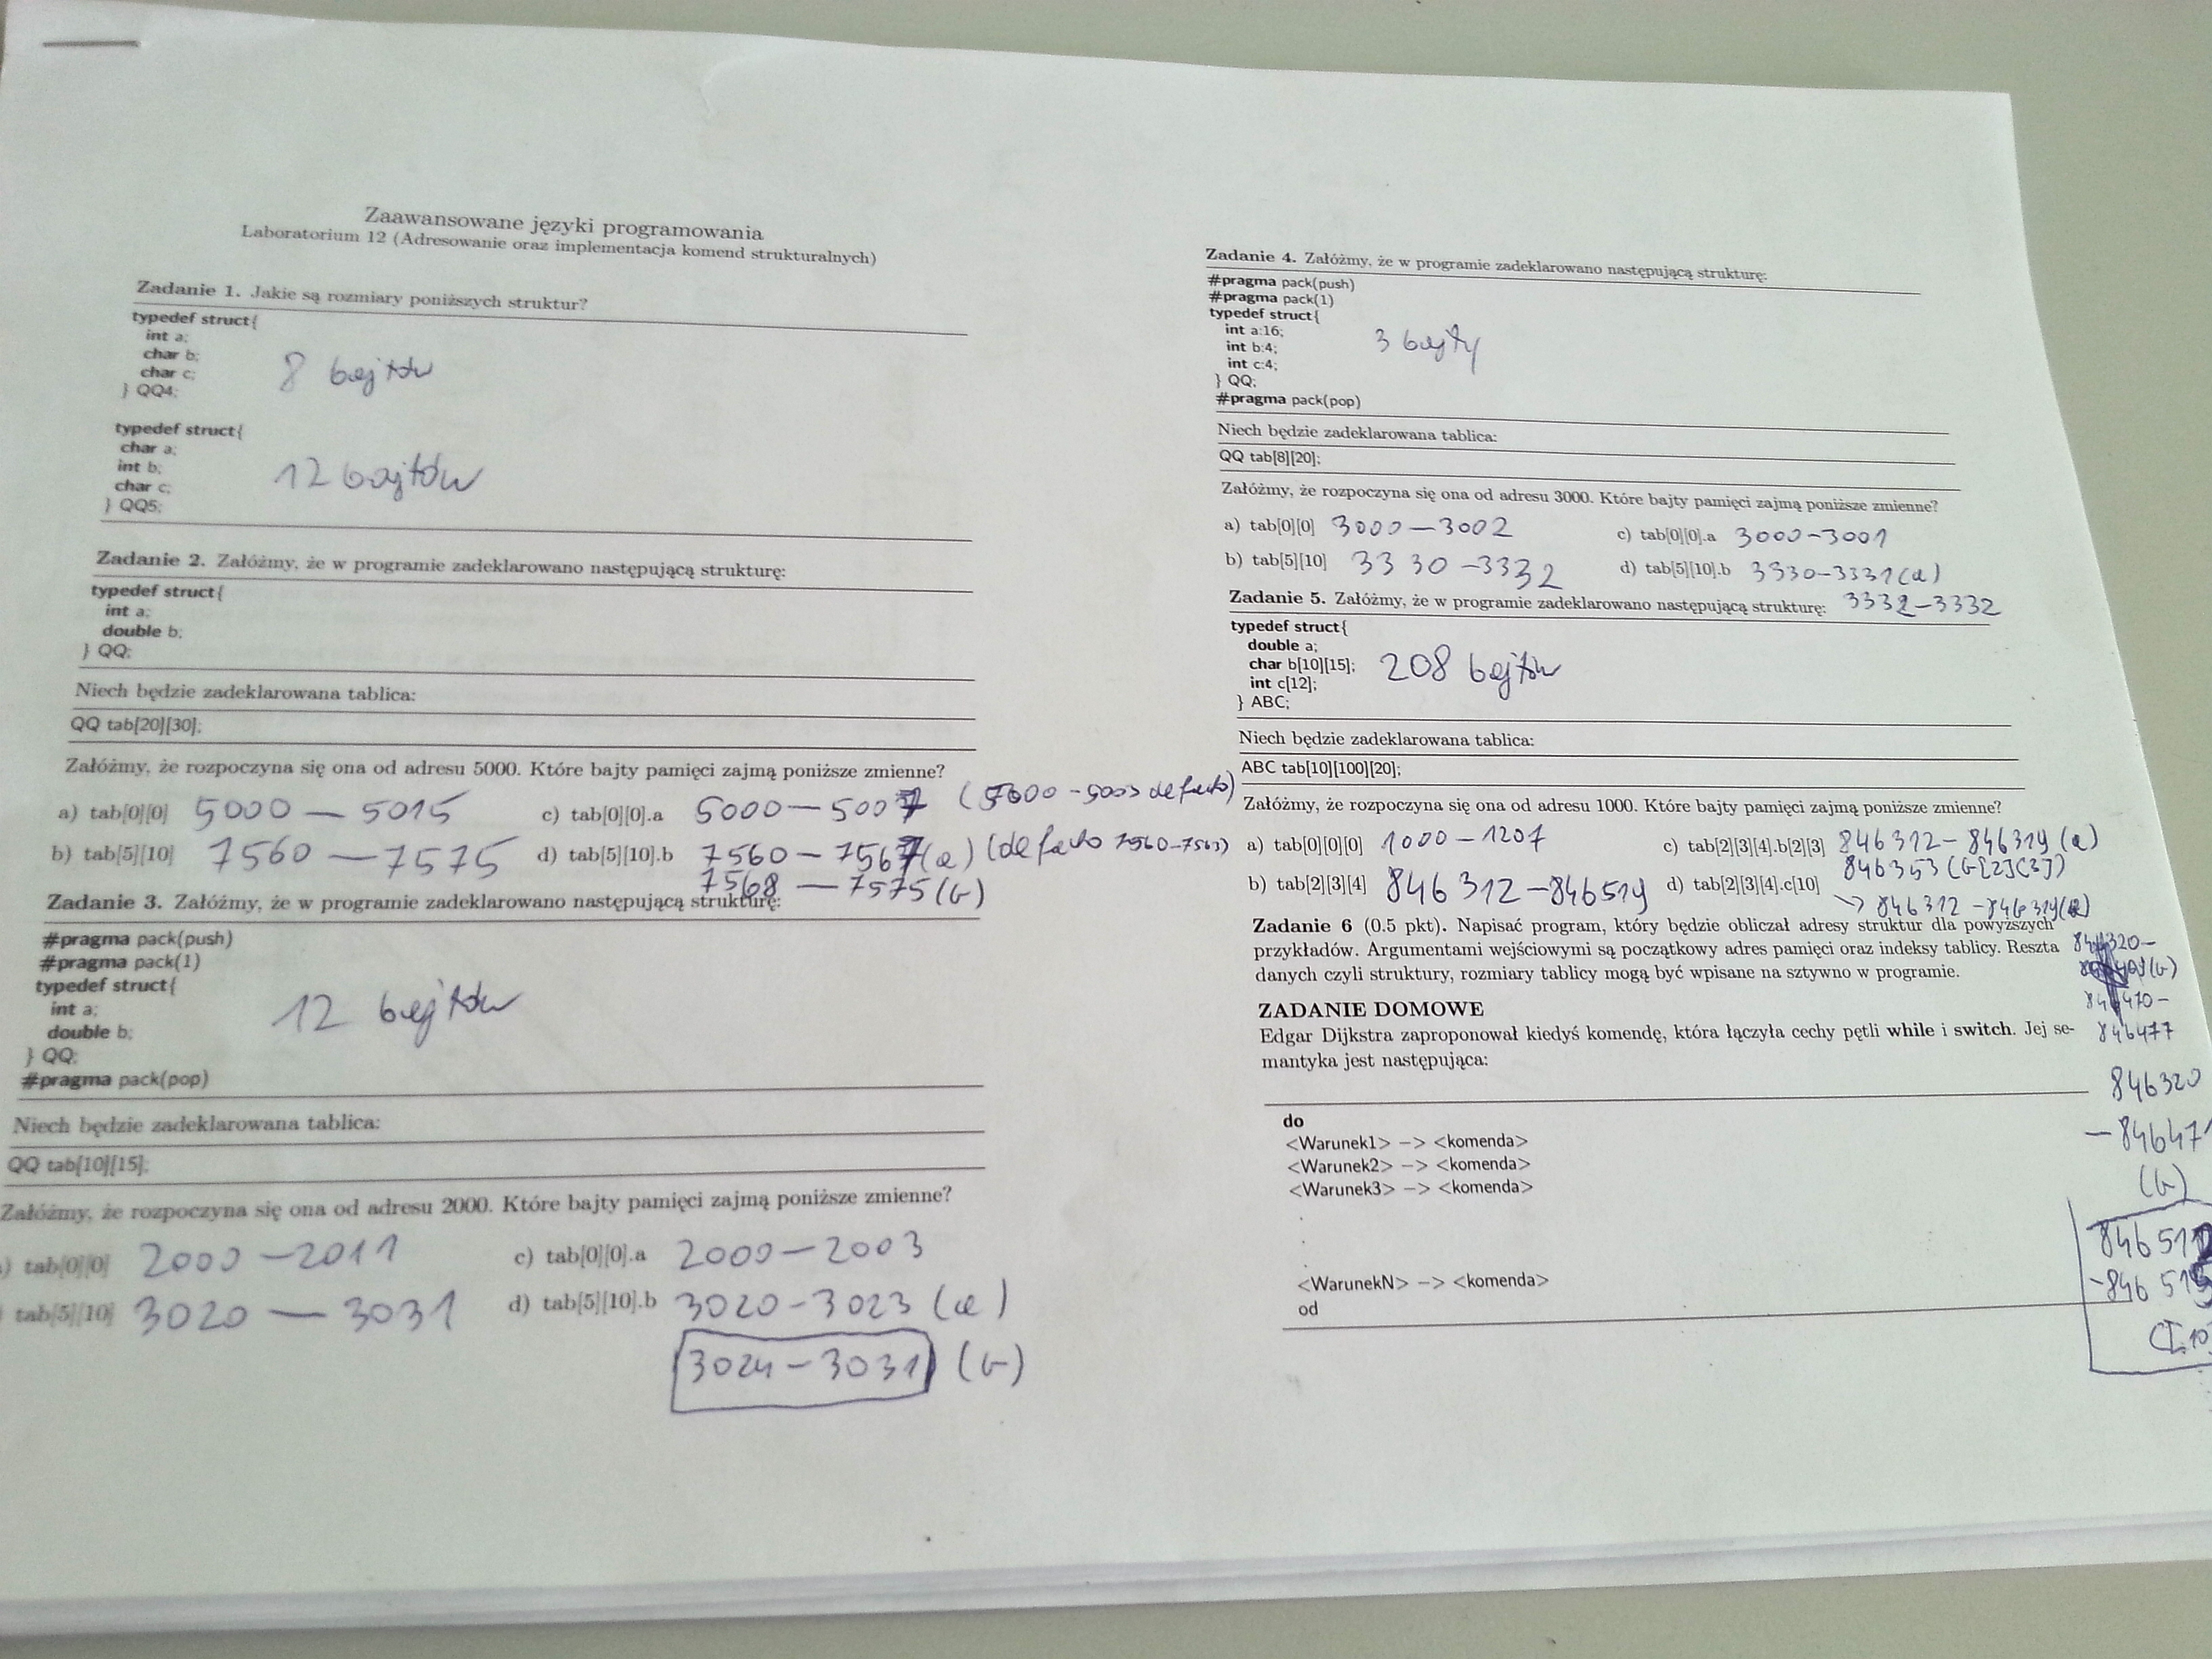 Zaawansowane języki programowania
Laboratorium 12 (Adresowanie oraz implementacja komend strukturalnych)
Zadanie 1. Jakie są rozmiary poniższych struktur?
typedef struct{
int a;
char b;
char c;
} QQ4;
8 bajtów
typedef struct{
char a;
int b;
char c;
} QQ5;
12 bajtów
Zadanie 2. Załóżmy, że w programie zadeklarowano następującą strukturę:
typedef struct{
int a;
double b;
} QQ;
Niech będzie zadeklarowana tablica:
QQ tab[20][30];
Załóżmy, że rozpoczyna się ona od adresu 5000. Które bajty pamięci zajmą poniższe zmienne?
a) tab[0][0] 5000 — 5015 c) tab[0][0].a 5000 — 5007 (5000 - 5003 de facto)
b) tab[5][10] 7560 — 7575 d) tab[5][10].b 7560 — 7567 (a) (de facto 7560-7563)
7568 — 7575 (b)
Zadanie 3. Załóżmy, że w programie zadeklarowano następującą strukturę:
#pragma pack(push)
#pragma pack(1)
typedef struct{
int a;
double b;
} QQ;
#pragma pack(pop)
12 bajtów
Niech będzie zadeklarowana tablica:
QQ tab[10][15];
Załóżmy, że rozpoczyna się ona od adresu 2000. Które bajty pamięci zajmą poniższe zmienne?
) tab[0][0] 2000 — 2011 c) tab[0][0].a 2000 — 2003
tab[5][10] 3020 — 3031 d) tab[5][10].b 3020 - 3023 (a)
3024 - 3031 (b)
Zadanie 4. Załóżmy, że w programie zadeklarowano następującą strukturę:
#pragma pack(push)
#pragma pack(1)
typedef struct{
int a:16;
int b:4;
int c:4;
} QQ;
#pragma pack(pop)
3 bajty
Niech będzie zadeklarowana tablica:
QQ tab[8][20];
Załóżmy, że rozpoczyna się ona od adresu 3000. Które bajty pamięci zajmą poniższe zmienne?
a) tab[0][0] 3000 — 3002 c) tab[0][0].a 3000 - 3001
b) tab[5][10] 3330 - 3332 d) tab[5][10].b 3330 - 3331 (a)
3332 - 3332
Zadanie 5. Załóżmy, że w programie zadeklarowano następującą strukturę:
typedef struct{
double a;
char b[10][15];
int c[12];
} ABC;
208 bajtów
Niech będzie zadeklarowana tablica:
ABC tab[10][100][20];
Załóżmy, że rozpoczyna się ona od adresu 1000. Które bajty pamięci zajmą poniższe zmienne?
a) tab[0][0][0] 1000 — 1207 c) tab[2][3][4].b[2][3] 846312 - 846319 (a)
846353 (b[2][3])
b) tab[2][3][4] 846312 - 846519 d) tab[2][3][4].c[10]
→ 846312 - 846319 (a)
Zadanie 6 (0.5 pkt). Napisać program, który będzie obliczał adresy struktur dla powyższych
przykładów. Argumentami wejściowymi są początkowy adres pamięci oraz indeksy tablicy. Reszta
danych czyli struktury, rozmiary tablicy mogą być wpisane na sztywno w programie.
(b)
846470 -
846477
846320
- 84647
(b)
ZADANIE DOMOWE
Edgar Dijkstra zaproponował kiedyś komendę, która łączyła cechy pętli while i switch. Jej se-
mantyka jest następująca:
do
<Warunek1> -> <komenda>
<Warunek2> -> <komenda>
<Warunek3> -> <komenda>
.
.
<WarunekN> -> <komenda>
od